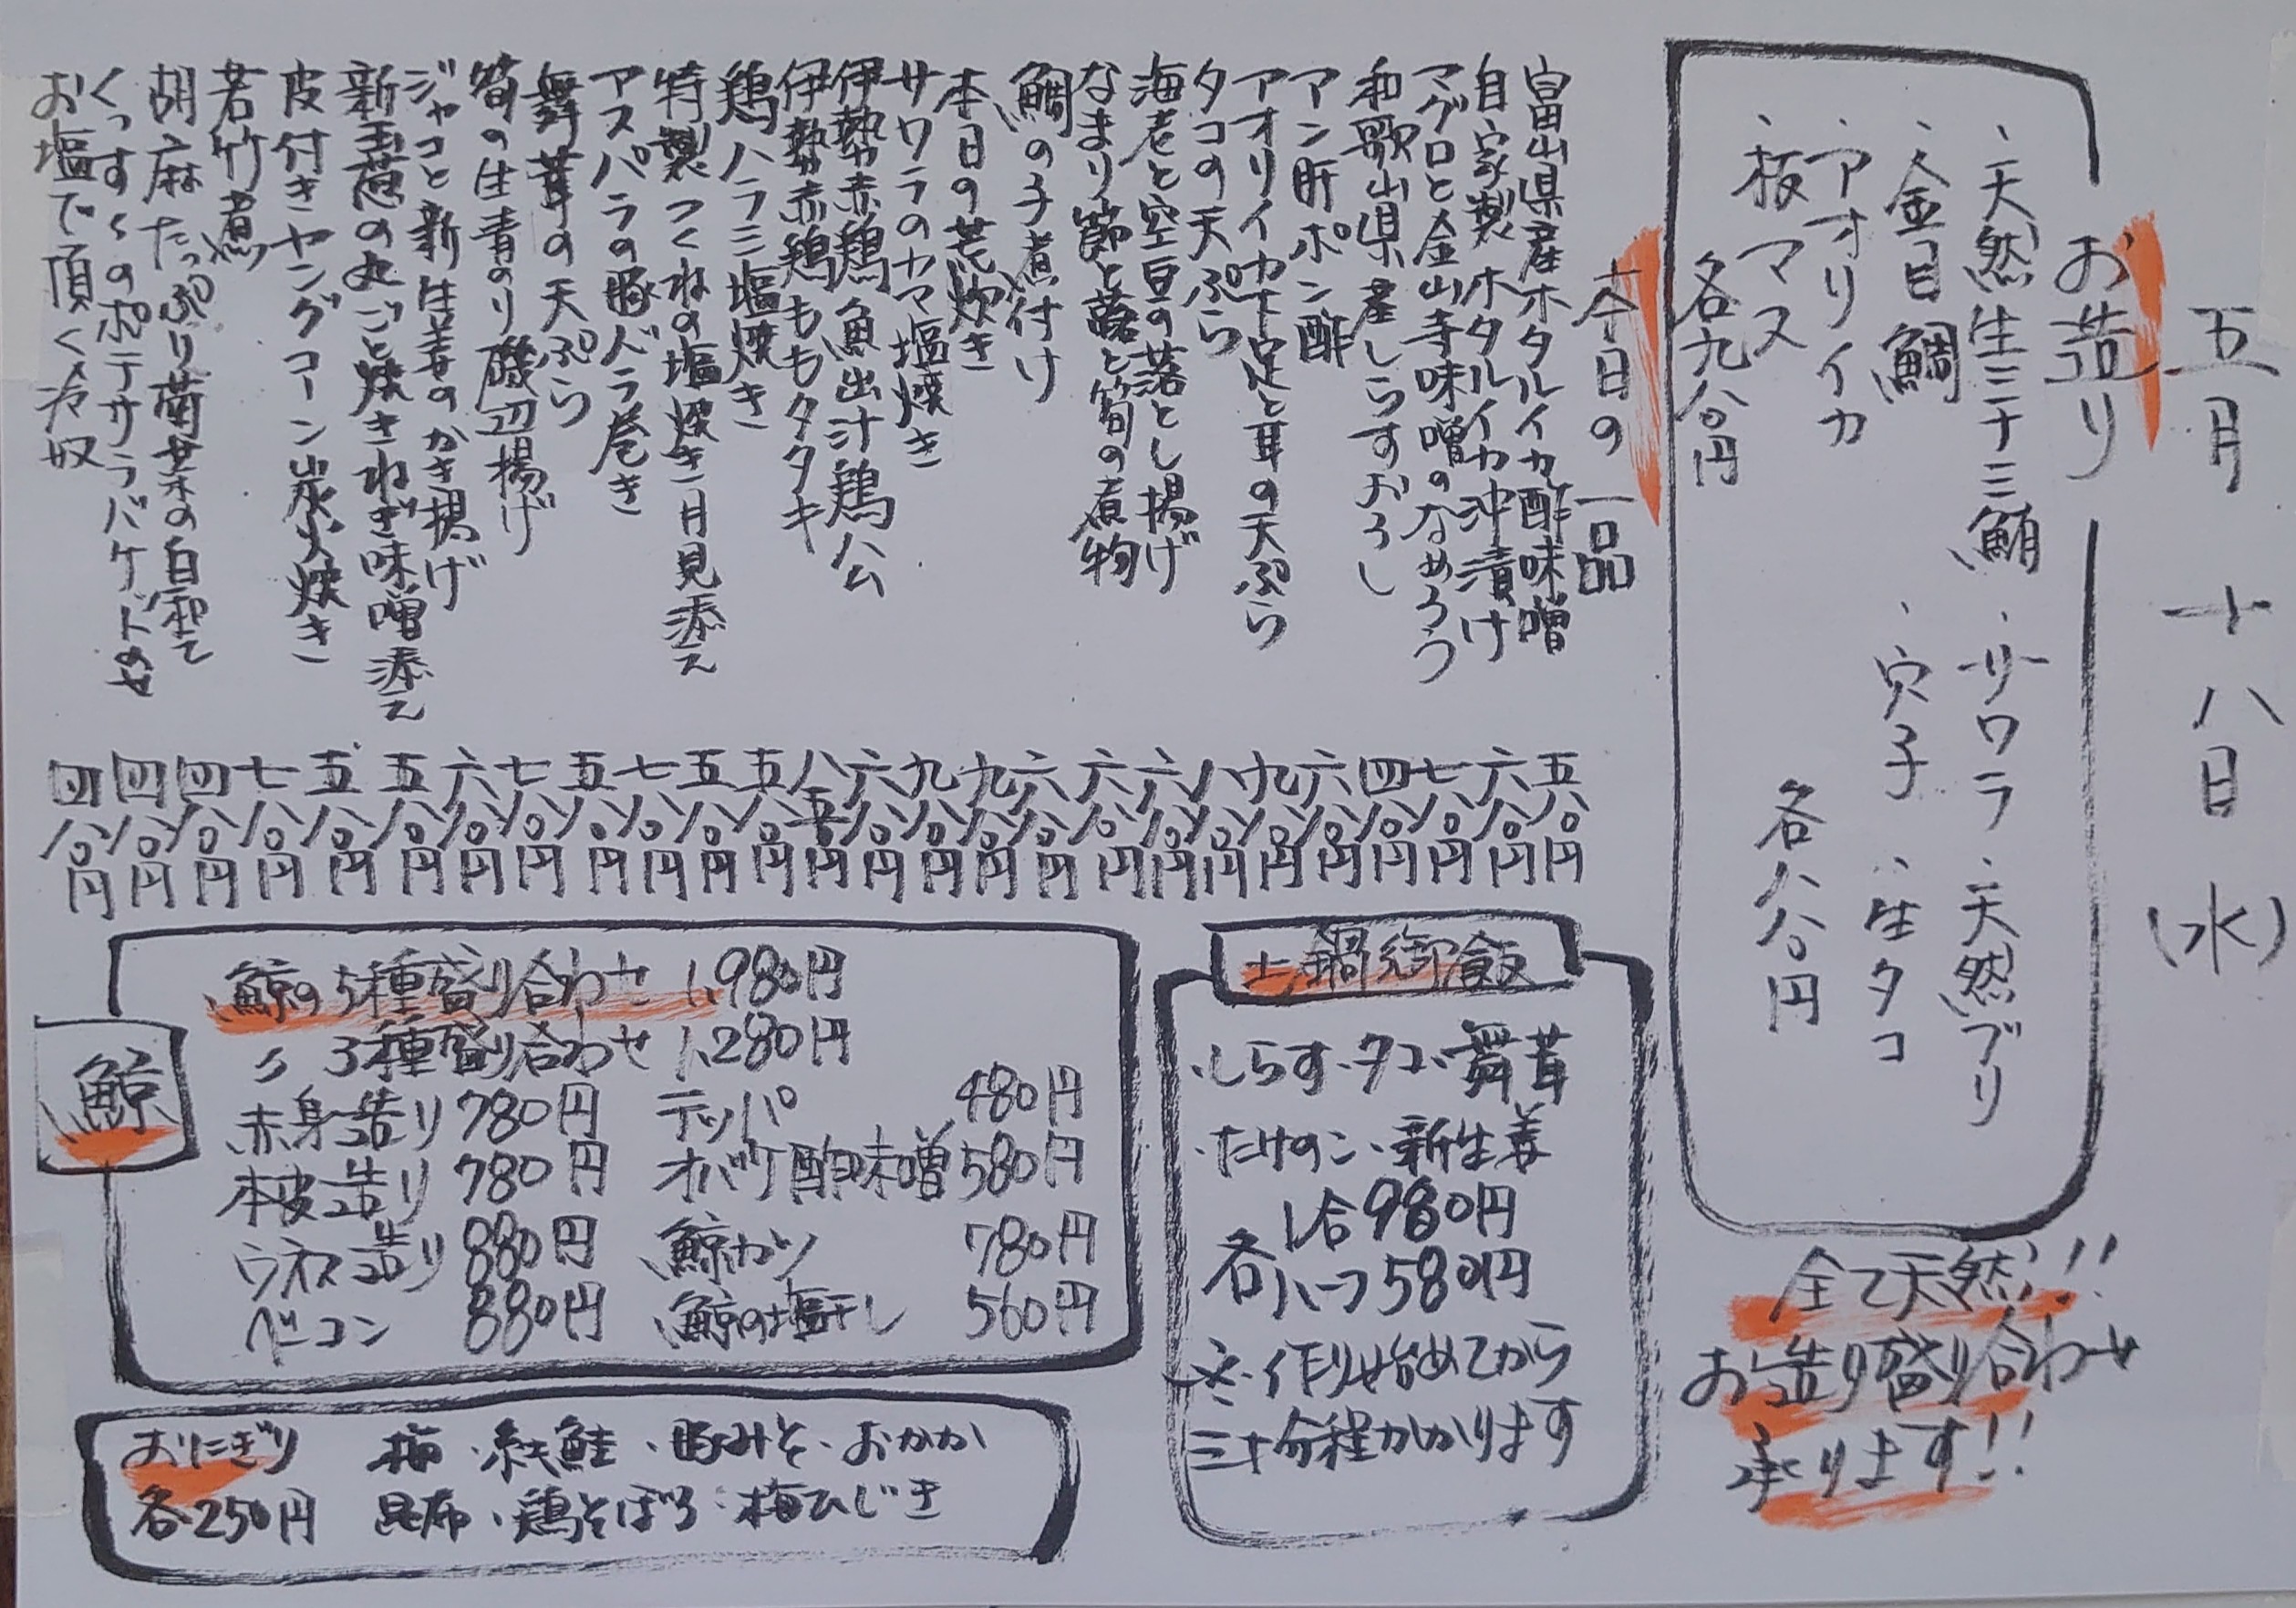 五月十八日(水)
お造り
、天然生三千三鮪、サワラ、天然ブリ
、金目鯛、穴子、生タコ
、アオリイカ
、板マス
各八八〇円
各九八〇円
全て天然!!
お造り盛り合わせ
承ります!!
今日の一品
富山県産ホタルイカ酢味噌 五八〇円
自家製ホタルイカ沖漬け 六八〇円
マグロと金山寺味噌のなめろう 七八〇円
和歌山県産しらすおろし 四八〇円
アン肝ポン酢 六八〇円
アオリイカ下足と耳の天ぷら 九八〇円
タコの天ぷら 八八〇円
海老と空豆の落とし揚げ 六八〇円
なまり節と蕗と筍の煮物 六八〇円
鯛の子煮付け 六八〇円
本日の荒炊き 九八〇円
サワラのカマ塩焼き 九八〇円
伊勢赤鶏 魚出汁鶏ハム 六八〇円
伊勢赤鶏ももタタキ 八五〇円
鶏ハラミ塩焼き 五八〇円
特製つくねの塩焼き月見添え 五八〇円
アスパラの豚バラ巻き 七八〇円
舞茸の天ぷら 五八〇円
筍の生青のり磯辺揚げ 七八〇円
ジャコと新生姜のかき揚げ 六八〇円
新玉葱の丸ごと焼きねぎ味噌添え 五八〇円
皮付きヤングコーン炭火焼き 五八〇円
若竹煮 七八〇円
胡麻たっぷり菊菜の白和え 四八〇円
くっすくのポテサラバケットのせ 四八〇円
お塩で頂く冷奴 四八〇円
土鍋御飯
・しらす・タコ・舞茸
・たけのこ・新生姜
各 一合980円
ハーフ580円
※作り始めてから
三十分程かかります
鯨
、鯨の5種盛り合わせ 1,980円
〃 3種盛り合わせ 1,280円
赤身造り 780円 テッパ 480円
本皮造り 780円 オバケ酢味噌 580円
ウネス造り 880円 鯨カツ 780円
ベーコン 880円 鯨の塩干し 560円
おにぎり 梅、紅鮭、豚みそ、おかか
各250円 昆布、鶏そぼろ、梅ひじき